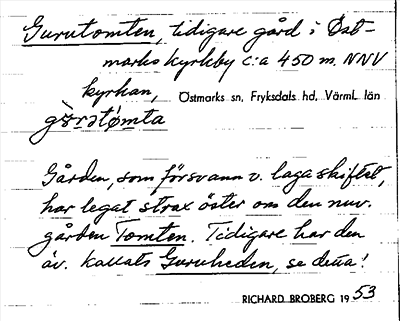 Gurutomten, tidigare gård i Öst-
marks kyrkby c:a 450 m. NNV
kyrkan, Östmarks sn, Fryksdals hd, Värml. län
gɜ̀rətǿmta
Gården, som försvann v. laga skiftet,
har legat strax öster om den nuv.
gården Tomten. Tidigare har den
äv. kallats Guruheden, se detta!
RICHARD BROBERG 1953